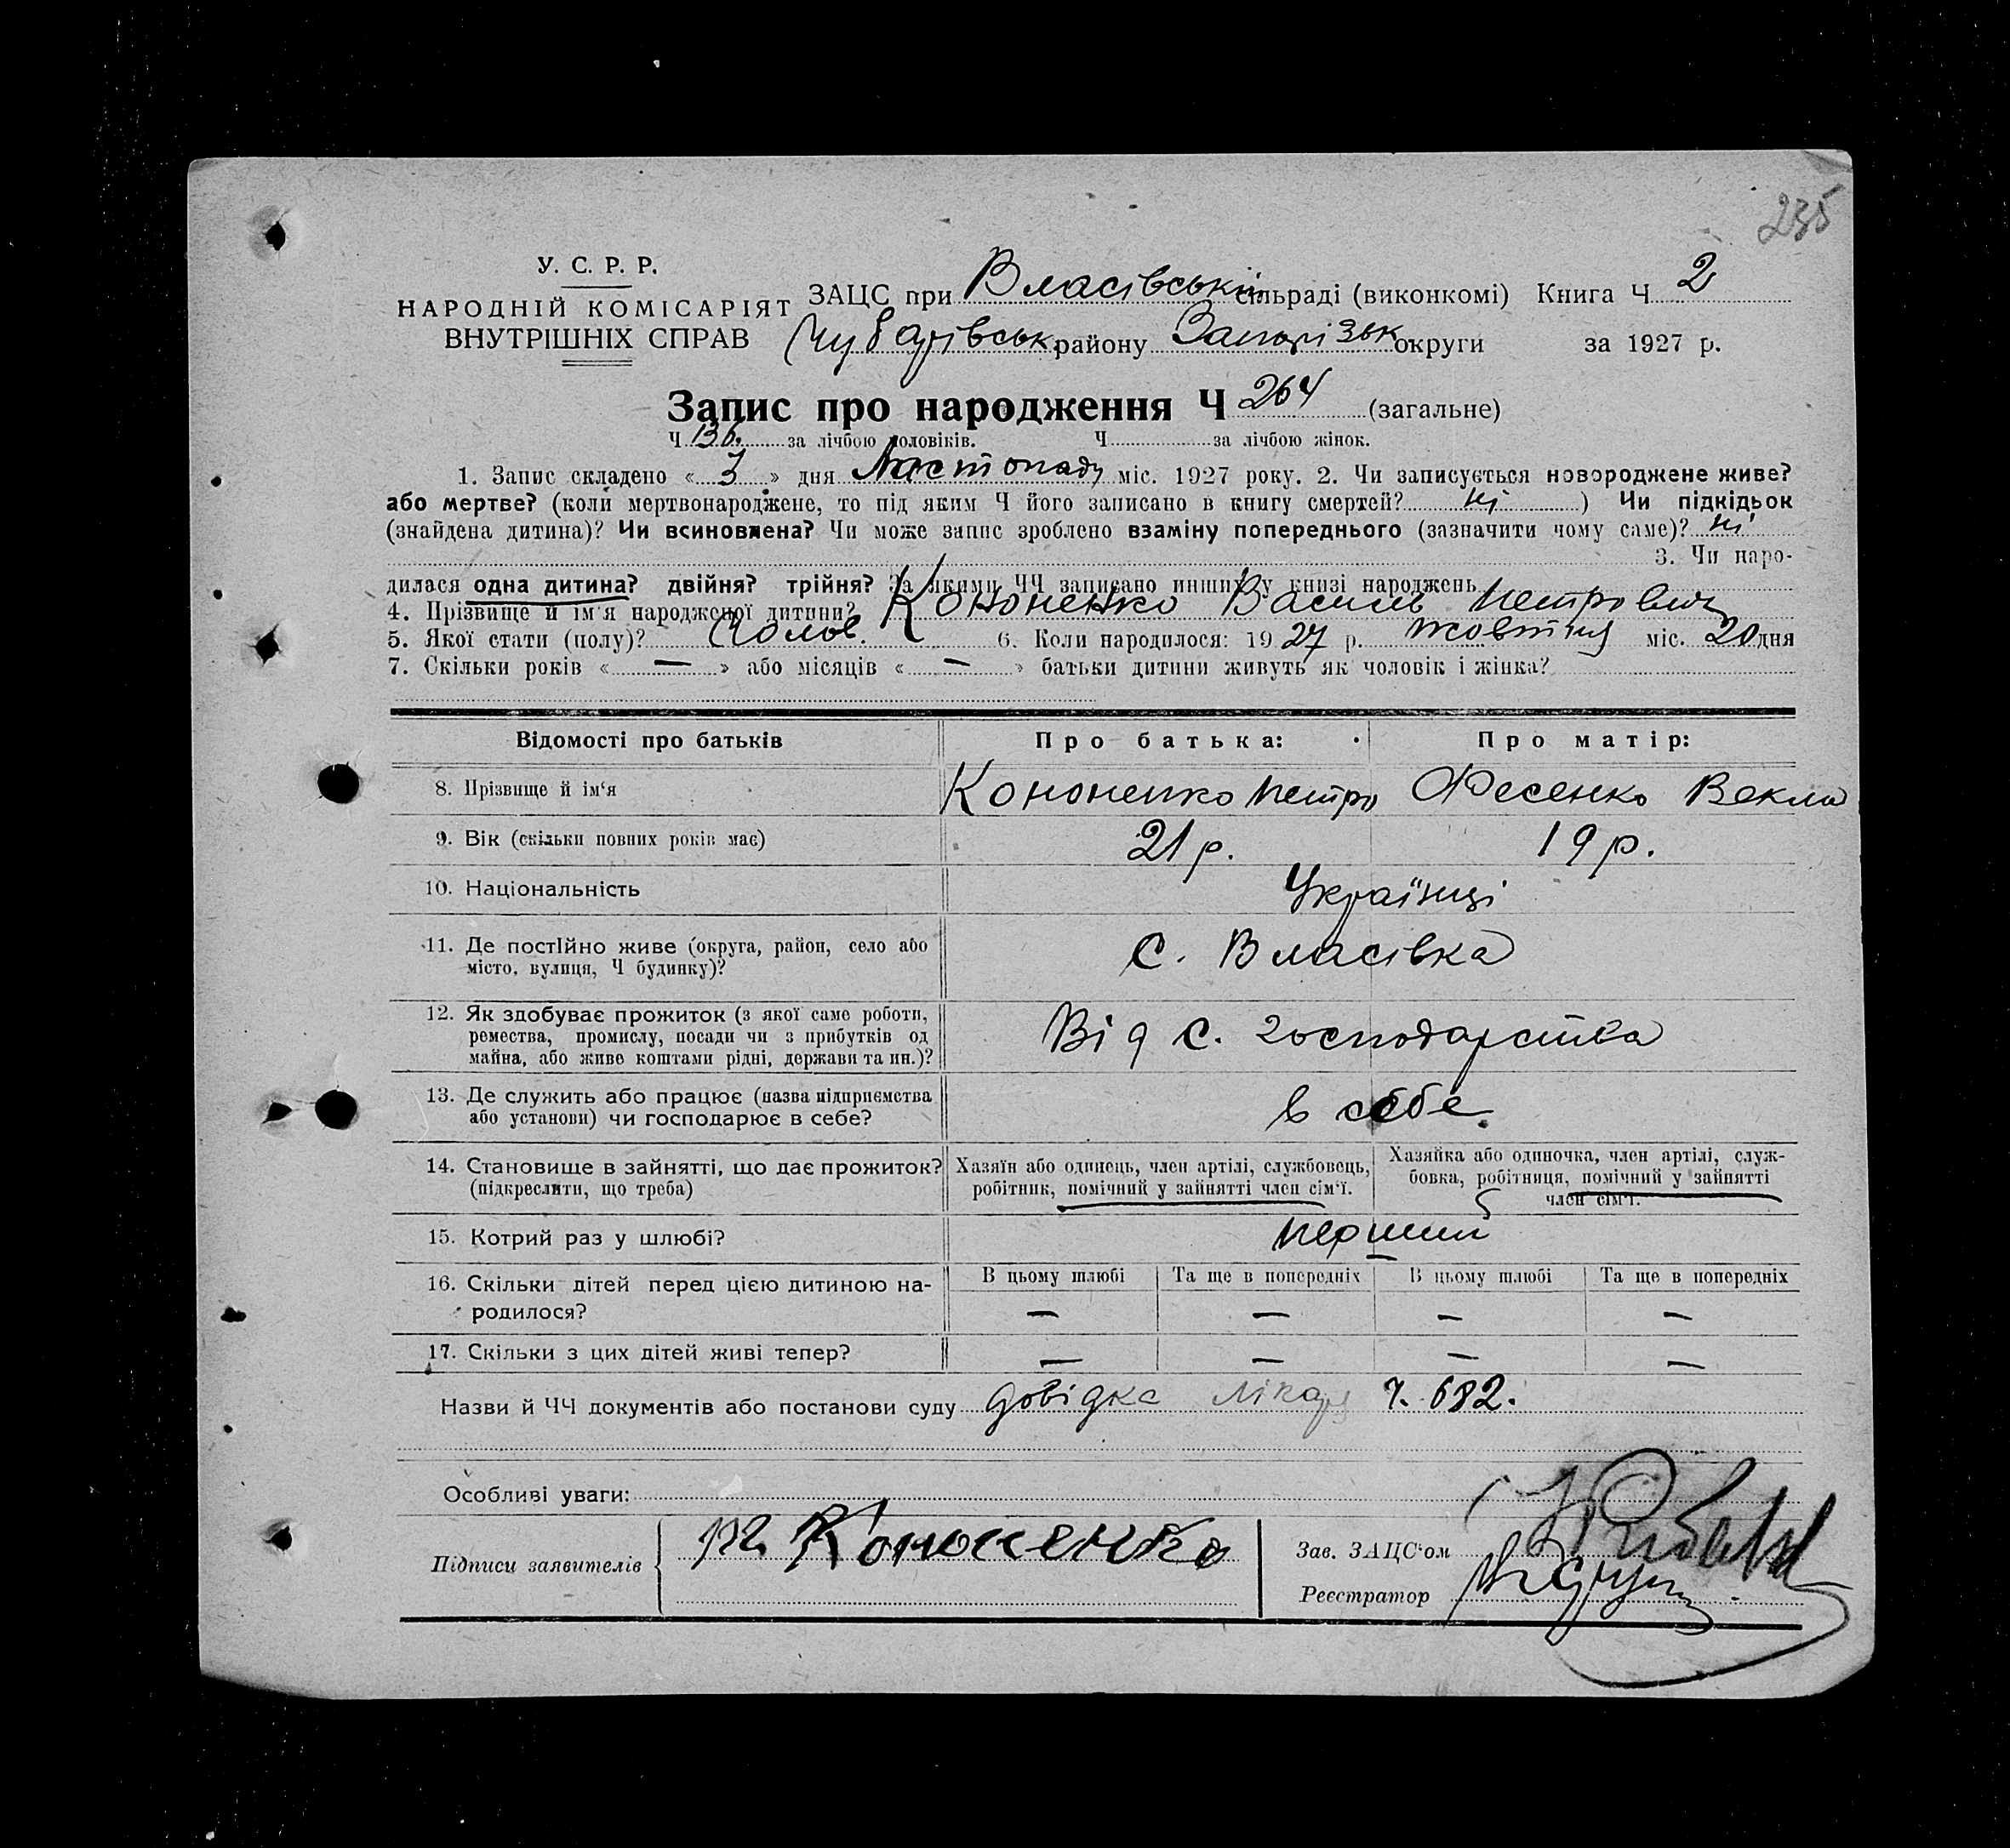 235
У. С. Р. Р.
НАРОДНІЙ КОМІСАРІЯТ
ВНУТРІШНІХ СПРАВ
ЗАЦС при Власівській сільраді (виконкомі) Книга Ч 2
Чубарівськ. району Запорізьк округи за 1927 р.
Запис про народження Ч 264 (загальне)
Ч 136. за лічбою чоловіків. Ч за лічбою жінок.
1. Запис складено «3» дня Листопаду міс. 1927 року. 2. Чи записується новороджене живе?
або мертве? (коли мертвонароджене, то під яким Ч його записано в книгу смертей? ні ) Чи підкідьок
(знайдена дитина)? Чи всиновлена? Чи може запис зроблено взаміну попереднього (зазначити чому саме)? ні
3. Чи наро-
дилася одна дитина? двійня? трійня? За якими ЧЧ записано инших у книзі народжень
4. Прізвище й ім'я народженої дитини? Кононенко Василь Петрович
5. Якої стати (полу)? Чолов. 6. Коли народилося: 1927 р. жовтня міс. 20 дня
7. Скільки років « — » або місяців « — » батьки дитини живуть як чоловік і жінка?
Відомості про батьків Про батька: Про матір:
8. Прізвище й ім'я Кононенко Петро Фесенко Векла
9. Вік (скільки повних років має) 21 р. 19 р.
10. Національність Українці
11. Де постійно живе (округа, район, село або
місто, вулиця, Ч будинку)? с. Власівка
12. Як здобуває прожиток (з якої саме роботи,
ремества, промислу, посади чи з прибутків од
майна, або живе коштами рідні, держави та ин.)? Від с. господарства
13. Де служить або працює (назва підприємства
або установи) чи господарює в себе? в себе.
14. Становище в зайнятті, що дає прожиток?
(підкреслити, що треба)
Хазяїн або одинець, член артілі, службовець,
робітник, помічний у зайнятті член сім'ї.
Хазяйка або одиночка, член артілі, служ-
бовка, робітниця, помічний у зайнятті
член сім'ї.
15. Котрий раз у шлюбі? перший
16. Скільки дітей перед цією дитиною на-
родилося?
В цьому шлюбі Та ще в попередніх В цьому шлюбі Та ще в попередніх
— — — —
17. Скільки з цих дітей живі тепер? — — — —
Назви й ЧЧ документів або постанови суду довідка лікаря ч. 682.
Особливі уваги:
Підписи заявителів Кононенко
Зав. ЗАЦС'ом
Реєстратор